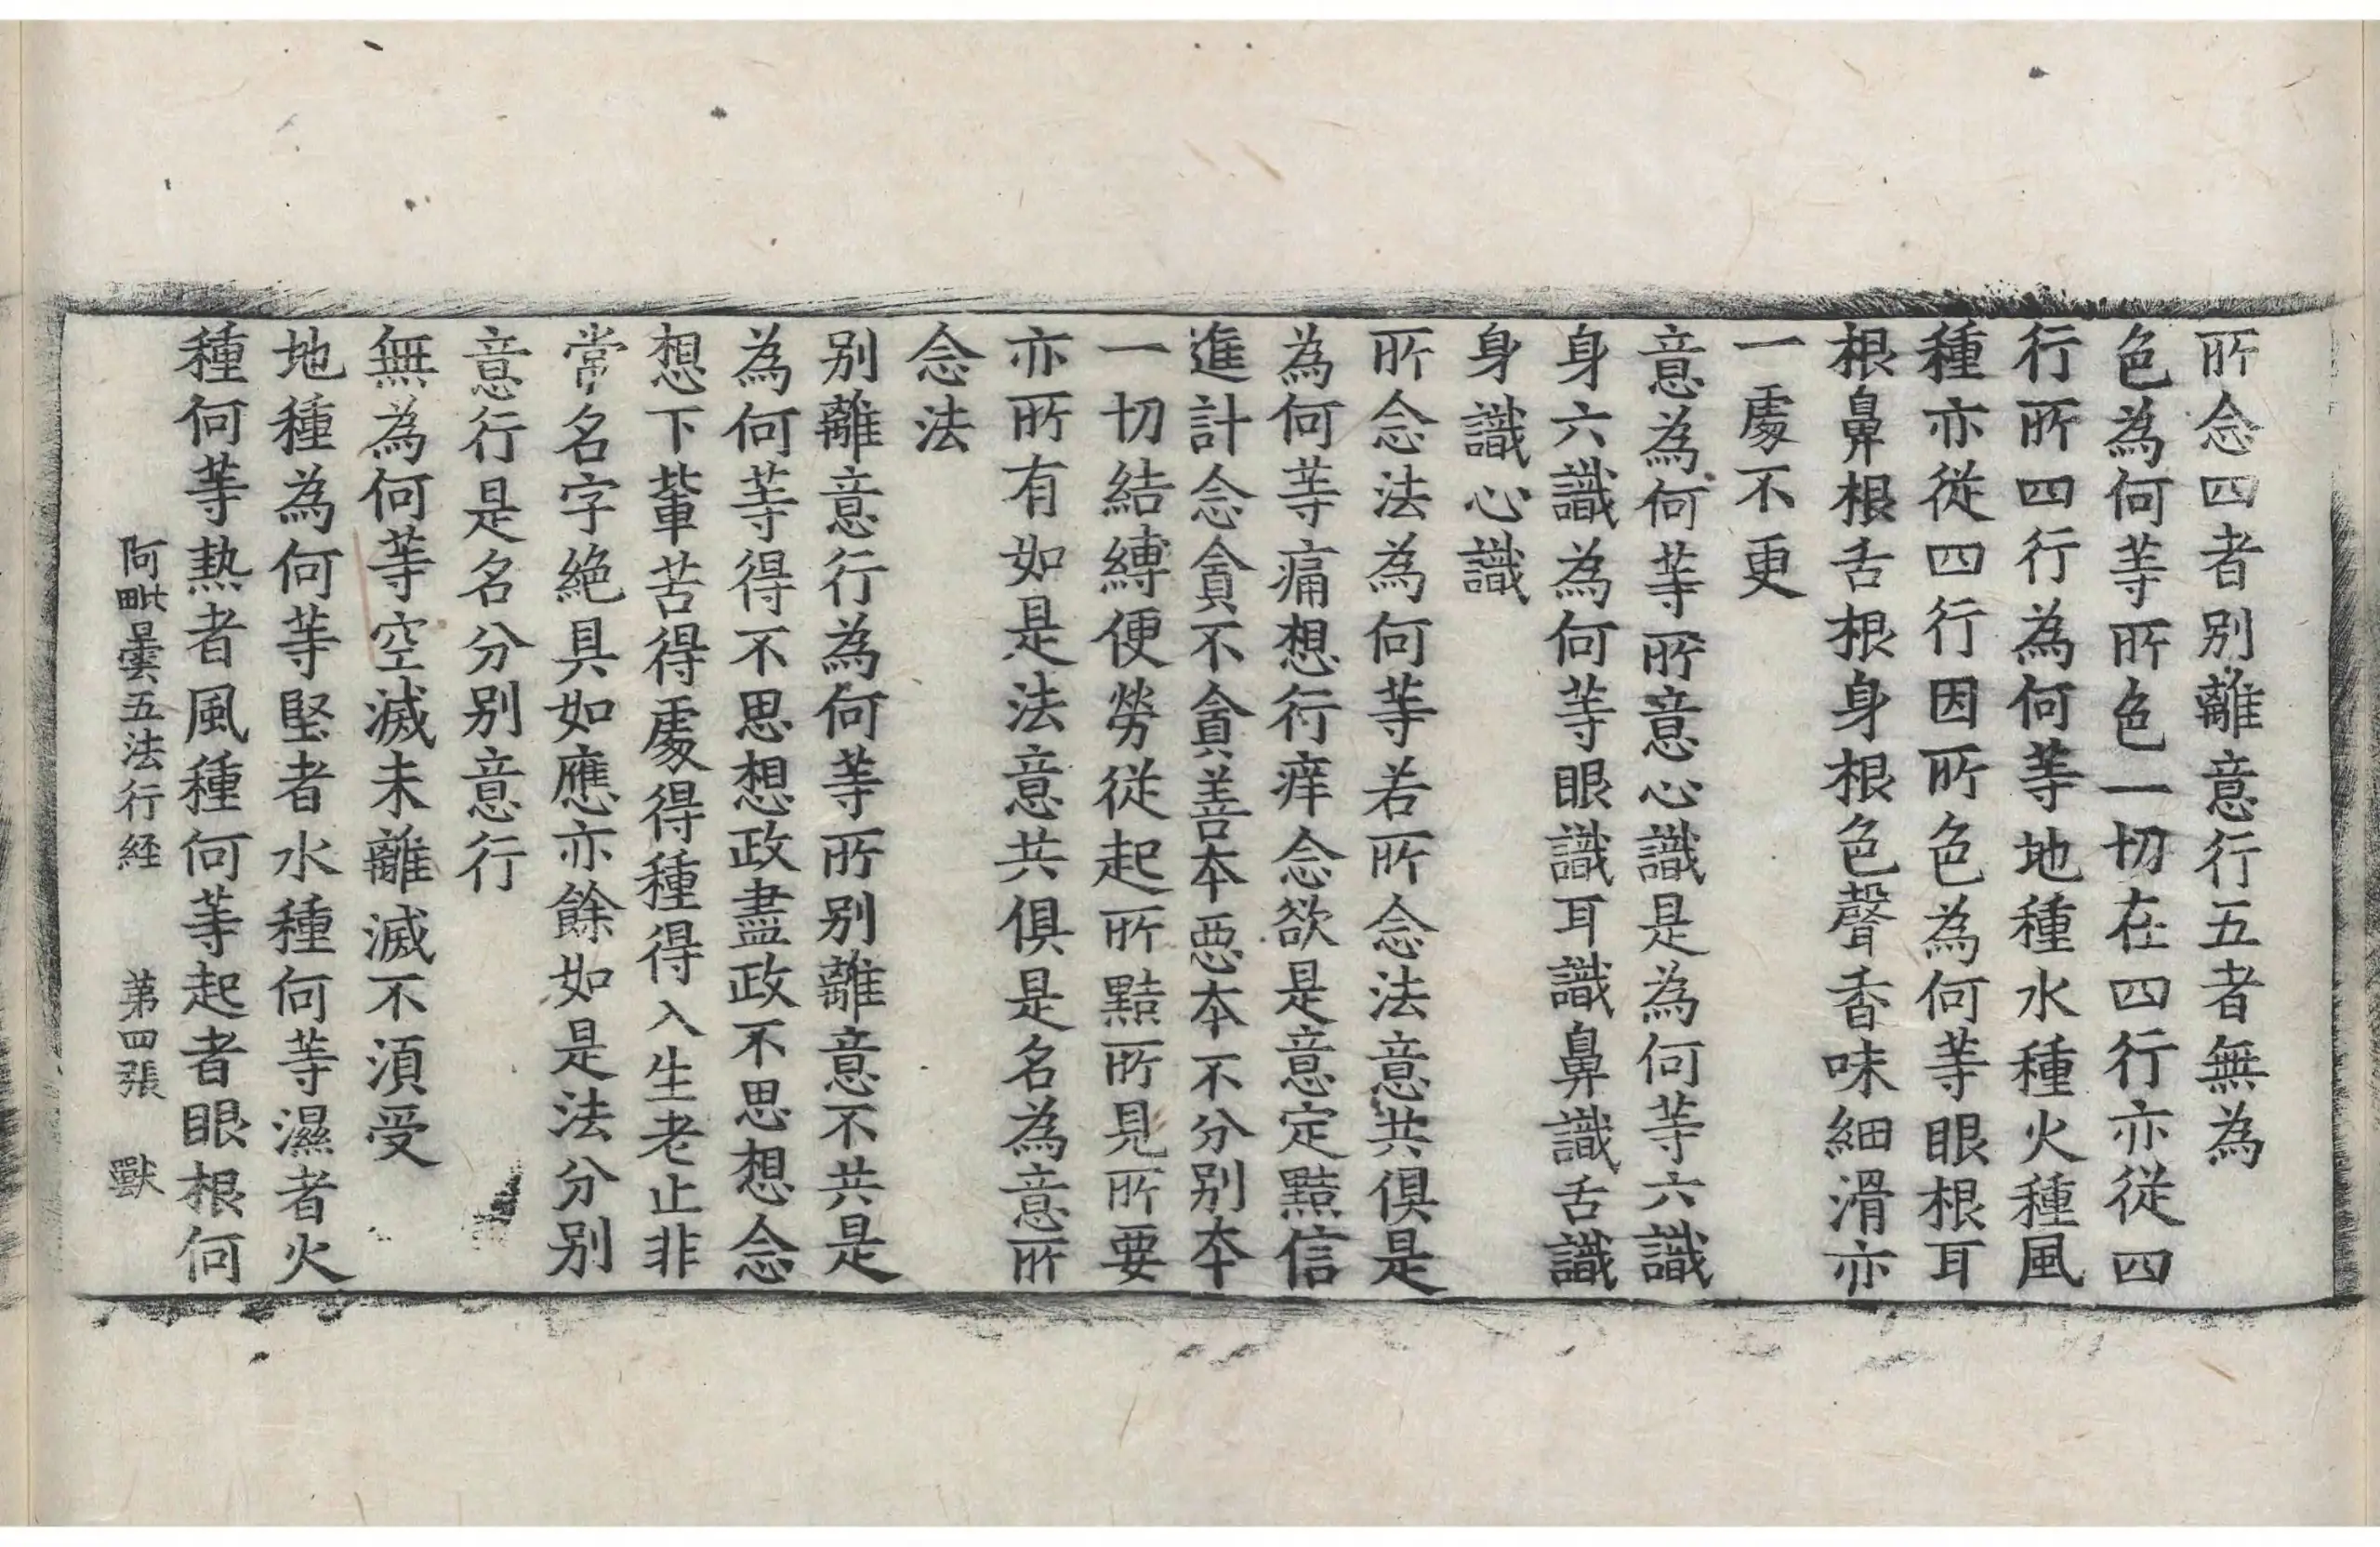 所念四者別離意行五者無為
色為何等所色一切在四行亦從四
行所四行為何等地種水種火種風
種亦從四行因所色為何等眼根耳
根鼻根舌根身根色聲香味細滑亦
一處不更
意為何等所意心識是為何等六識
身六識為何等眼識耳識鼻識舌識
身識心識
所念法為何等若所念法意共俱是
為何等痛想行痒念欲是意定黠信
進計念貪不貪善本惡本不分別本
一切結縛便勞從起所黠所見所要
亦所有如是法意共俱是名為意所
念法
別離意行為何等所別離意不共是
為何等得不思想政盡政不思想念
想下輩苦得處得種得入生老止非
常名字絕具如應亦餘如是法分別
意行是名分別意行
無為何等空滅未離滅不湏受
地種為何等堅者水種何等濕者火
種何等熱者風種何等起者眼根何
阿毗曇五法行経　第四張　獸